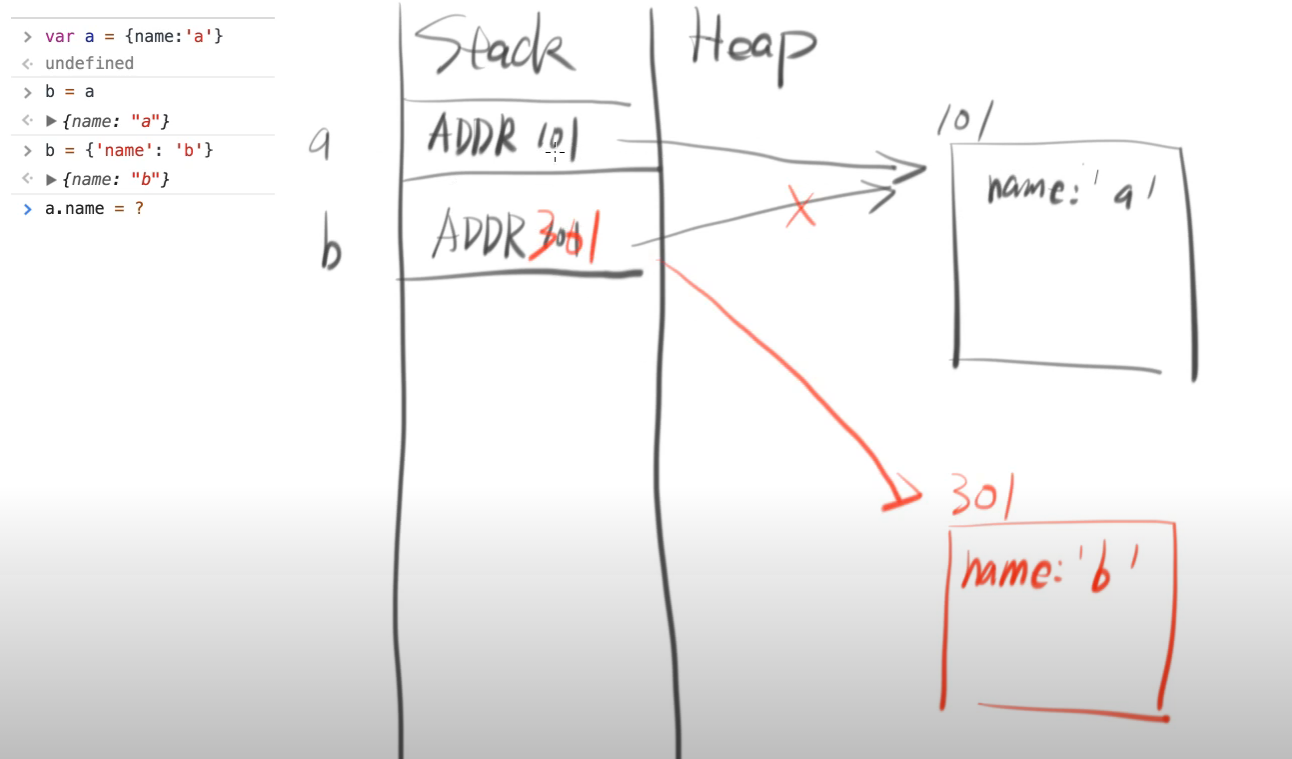 > var a = {name:'a'}
<· undefined
> b = a
<· ▶{name: "a"}
> b = {'name': 'b'}
<· ▶{name: "b"}
> a.name = ?
Stack
Heap
a
ADDR 101
101
name: 'a'
b
ADDR 301
301
name: 'b'